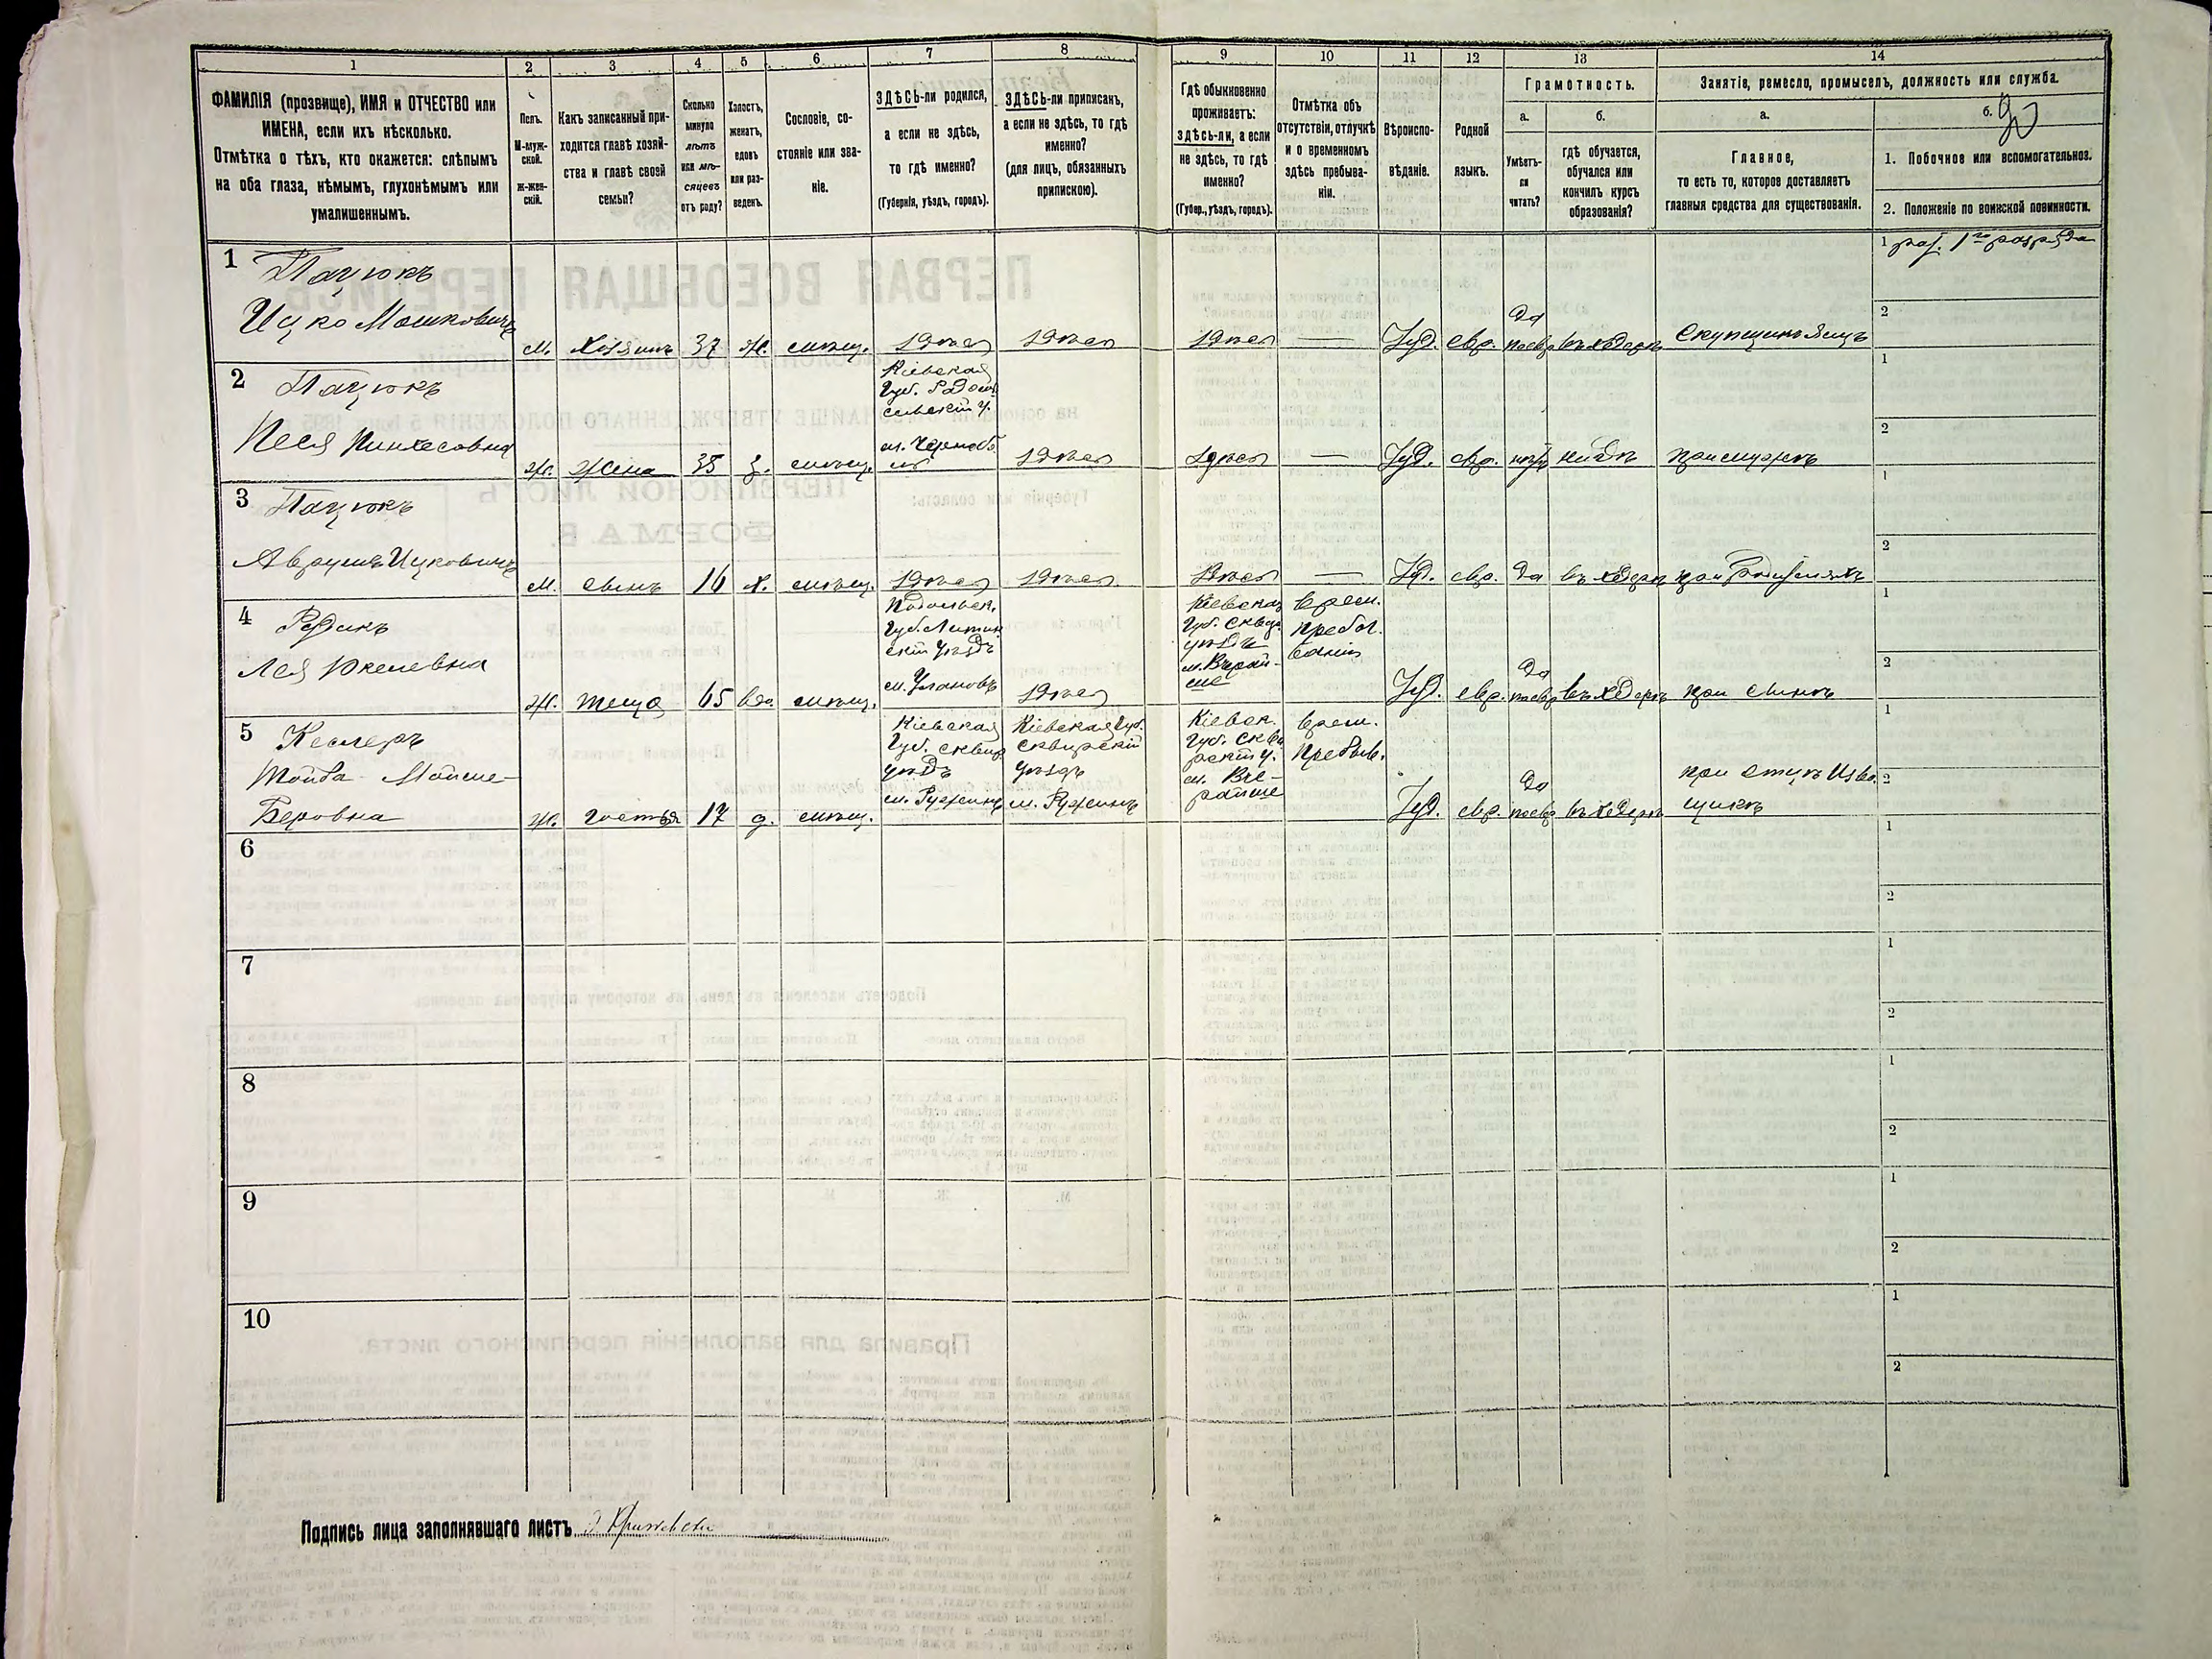 1 2 3 4 5 6 7 8 9 10 11 12 13 14
ФАМИЛІЯ (прозвище), ИМЯ и ОТЧЕСТВО или
ИМЕНА, если ихъ нѣсколько.
Отмѣтка о тѣхъ, кто окажется: слѣпымъ
на оба глаза, нѣмымъ, глухонѣмымъ или
умалишеннымъ.
Полъ.
М-муж-
ской.
ж-жен-
скій.
Какъ записанный при-
ходится главѣ хозяй-
ства и главѣ своей
семьи?
Сколько
минуло
лѣтъ
или мѣ-
сяцевъ
отъ роду?
Холостъ,
женатъ,
вдовъ
или раз-
веденъ.
Сословіе, со-
стояніе или зва-
ніе.
ЗДѢСЬ-ли родился,
а если не здѣсь,
то гдѣ именно?
(Губернія, уѣздъ, городъ).
ЗДѢСЬ-ли приписанъ,
а если не здѣсь, то гдѣ
именно?
(для лицъ, обязанныхъ
припискою).
Гдѣ обыкновенно
проживаетъ:
здѣсь-ли, а если
не здѣсь, то гдѣ
именно?
(Губер., уѣздъ, городъ).
Отмѣтка объ
отсутствіи, отлучкѣ
и о временномъ
здѣсь пребыва-
ніи.
Вѣроиспо-
вѣданіе.
Родной
языкъ.
Грамотность.
а.
Умѣетъ-
ли
читать?
б.
гдѣ обучается,
обучался или
кончилъ курсъ
образованія?
Занятія, ремесло, промыселъ, должность или служба.
а.
Главное,
то есть то, которое доставляетъ
главныя средства для существованія.
б.
1. Побочное или вспомогательное.
2. Положеніе по воинской повинности.
1 Пацюкъ
Ицко Мошковичъ
м. Хозяинъ 37 ж. мѣщ. здѣсь здѣсь здѣсь — Іуд. евр. да въ хедерѣ Скупщикъ яицъ
1 1го разряда
2
2 Пацюкъ
Песя Пинхесовна
ж. жена 35 з. мѣщ.
Кіевская
Губ. Радомы
сльскій у.
м. Чернобы
здѣсь здѣсь — Іуд. евр. нигдѣ при мужѣ
1
2
3 Пацюкъ
Аврумъ Ицковичъ
м. сынъ 16 х. мѣщ. здѣсь здѣсь здѣсь — Іуд. евр. да въ хедерѣ при родителяхъ
1
2
4
Лея
ж. теща 65 вдо. мѣщ.
Подольск.
Губ. Литин
скій уѣздъ
м. Улановъ
здѣсь
Кіевская
Губ. Сквир.
уѣздъ
врем.
пребы
ваніи
Іуд. евр. да въ хедерѣ при сынѣ
1
2
5 Кеслеръ
Тойба - Мойше-
Беровна
ж. гостья 17 д. мѣщ.
Кіевская
Губ. Сквир
уѣздъ
м. Ружинъ
Кіевская Губ.
Сквирскій
уѣздъ
м. Ружинъ
Кіевск.
Губ. Скви
рскій у.
врем.
пребыв.
Іуд. евр. да въ хедерѣ
при отцѣ Изво
щикъ
1
2
6
1
2
7
1
2
8
1
2
9
1
2
10
1
2
Подпись лица заполнявшаго листъ